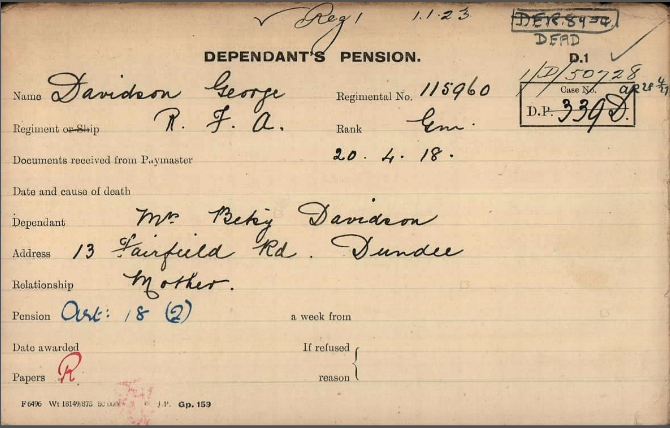 Reg 1 1.1.23
DEAD
DEPENDANT'S PENSION. D.1
11/D/50728
Name Davidson George Regimental No. 115960
Case No.
D.P. 339D.
Regiment or Ship R. F. A. Rank Gnr.
Documents received from Paymaster 20. 4. 18.
Date and cause of death
Dependant Mrs Betsy Davidson
Address 13 Fairfield Rd. Dundee
Relationship Mother.
Pension Art: 18 (2) a week from
Date awarded If refused
Papers R reason
F6496 Wt 18149/875 J.P. Gp. 159